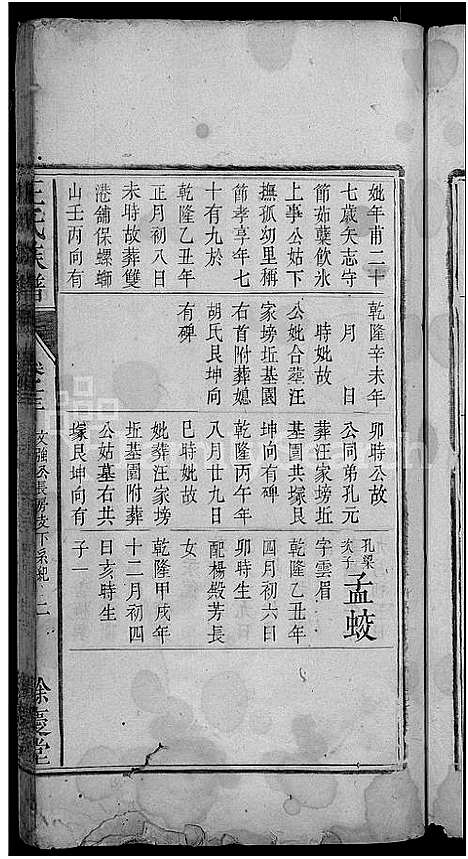 妣年甫二十
七歲矢志守
節茹蘗飲氷
上事公姑下
撫孤幼里稱
節孝享年七
十有九於
乾隆乙丑年
正月初八日
未時故葬雙
港舖保螺螄
山壬丙向有
乾隆辛未年
月 日
時妣故
公妣合葬汪
家塝坵墓園
右首附葬媳
胡氏艮坤向
有碑
卯時公故
公同弟孔元
葬汪家塝坵
墓園共塚艮
坤向有碑
乾隆丙午年
八月廿九日
巳時妣故
妣葬汪家塝
坵墓園附葬
公姑墓右共
塚艮坤向有
孔梁
次子
孟蛟
字雲眉
乾隆乙丑年
四月初六日
卯時生
配楊殿芳長
女
乾隆甲戌年
十二月初四
日亥時生
子一
王氏族譜
卷之三
文強公長房
下系紀
二
餘慶堂